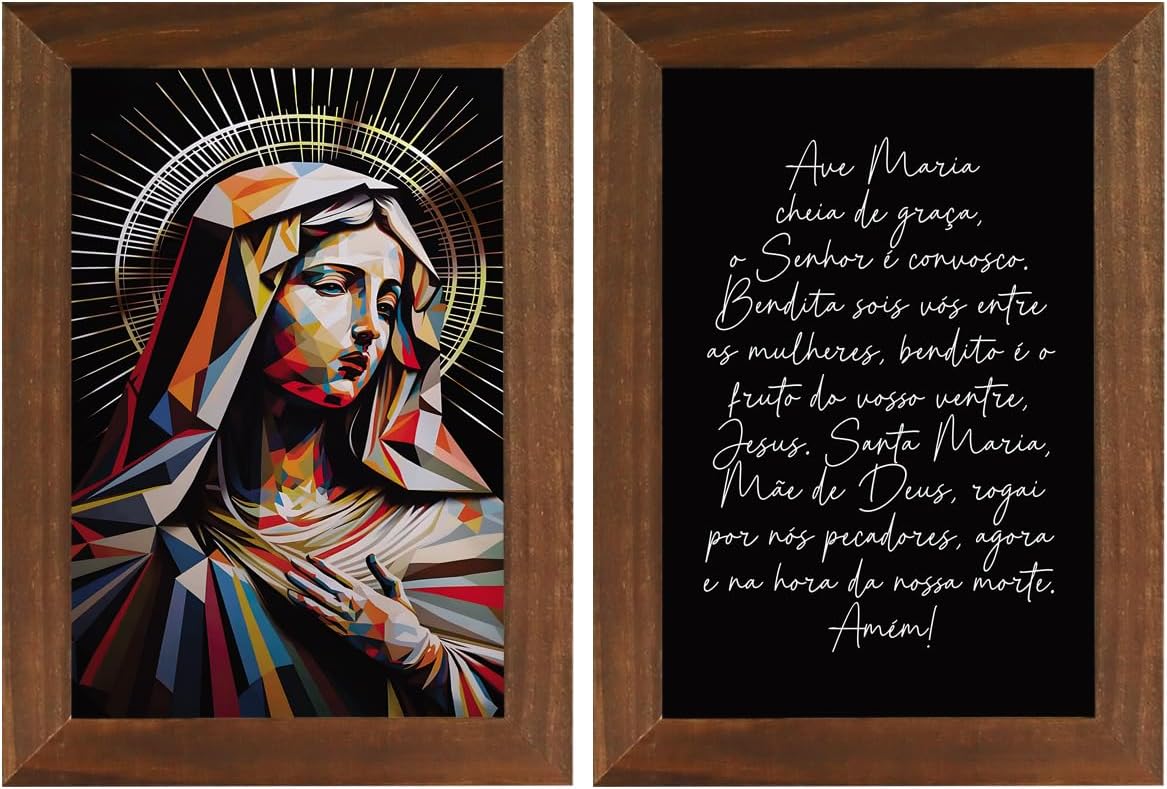 Ave Maria
cheia de graça,
o Senhor é convosco.
Bendita sois vós entre
as mulheres, bendito é o
fruto do vosso ventre,
Jesus. Santa Maria,
Mãe de Deus, rogai
por nós pecadores, agora
e na hora da nossa morte.
Amém!